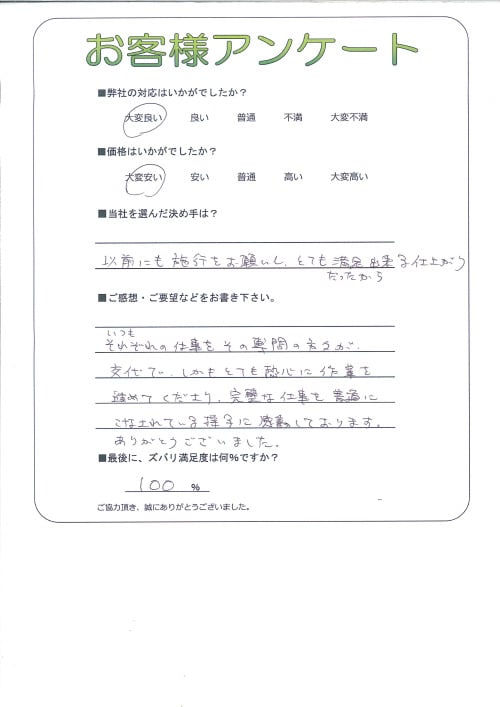 お客様アンケート
■弊社の対応はいかがでしたか？
大変良い 良い 普通 不満 大変不満
■価格はいかがでしたか？
大変安い 安い 普通 高い 大変高い
■当社を選んだ決め手は？
以前にも施行をお願いし、とても満足出来る仕上がり
だったから
■ご感想・ご要望などをお書き下さい。
いつも
それぞれの仕事をその専門の方々が、
交代で、しかもとても熱心に作業を
進めてくださり、完璧な仕事を普通に
こなされている様子に感動しております。
ありがとうございました。
■最後に、ズバリ満足度は何％ですか？
100 ％
ご協力頂き、誠にありがとうございました。